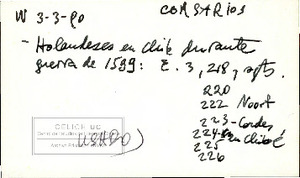 W 3-3-90 CORSARIOS
- Holandeses en Chile durante
guerra de 1599: E. 3, 218, y
220
222 Noort
223 - Cordes
224 en Chiloé
225
226
CELICH UC
USADO